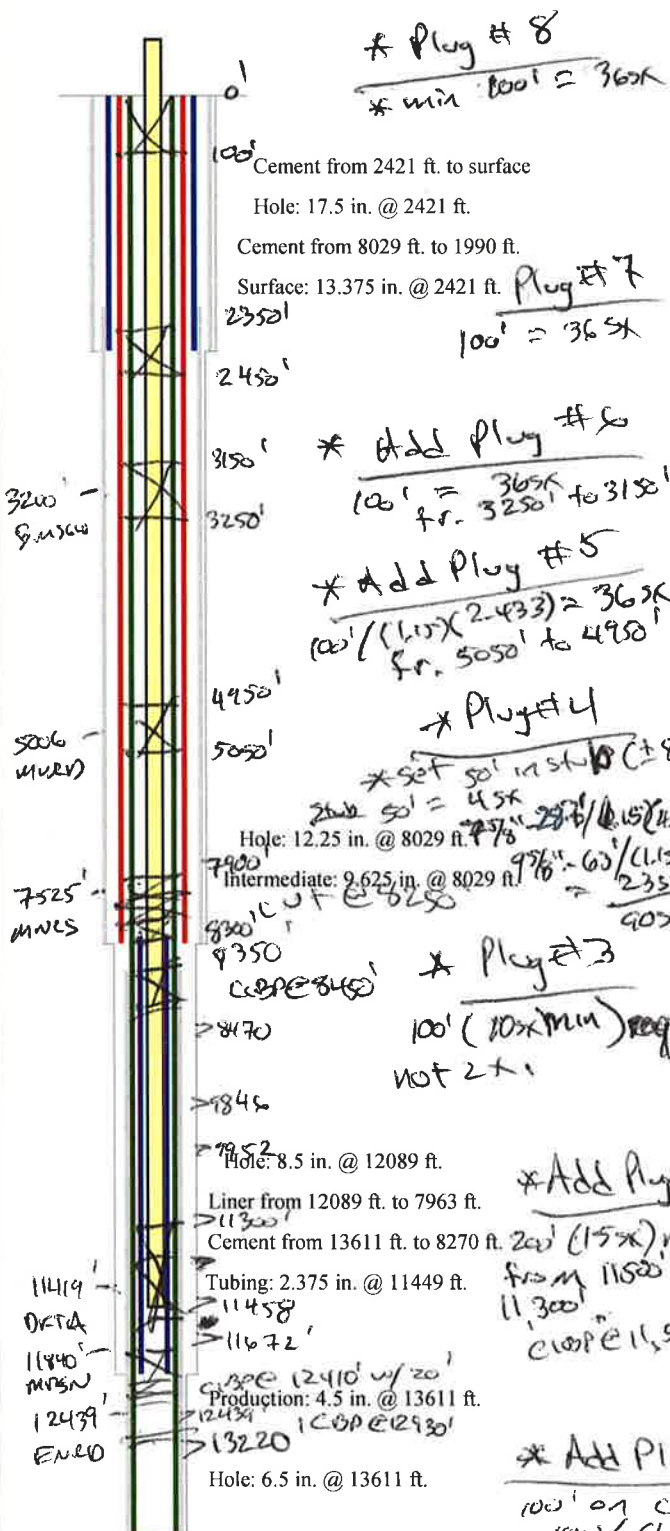 * Plug # 8
* min 100' = 36sx
0'
100'
Cement from 2421 ft. to surface
Hole: 17.5 in. @ 2421 ft.
Cement from 8029 ft. to 1990 ft.
Surface: 13.375 in. @ 2421 ft.
Plug # 7
100' = 36sx
2350'
2450'
* Add Plug #6
100' = 36sx
fr. 3250' to 3150'
3150'
3200'
3250'
* Add Plug #5
100'/(1.15)(2.433) = 36sx
fr. 5050' to 4950'
4950'
5006
5050'
* Plug #4
* set 50' in stub
50' = 4sx
Hole: 12.25 in. @ 8029 ft.
7900'
Intermediate: 9.625 in. @ 8029 ft.
7525'
MNCS
cut @ 8250'
8300'
8350
CIBP @ 8450'
* Plug #3
100' (10sx min)
not 2x.
>8470
>9846
>9952
Hole: 8.5 in. @ 12089 ft.
Liner from 12089 ft. to 7963 ft.
>11300'
Cement from 13611 ft. to 8270 ft.
* Add Plug
200' (15sx)
from 11500'
11,300'
Tubing: 2.375 in. @ 11449 ft.
11419'
DKTA
>11458
>11672'
11840'
12410' w/ 20'
Production: 4.5 in. @ 13611 ft.
12439'
>12439'
CBP @ 12930'
>13220
Hole: 6.5 in. @ 13611 ft.
* Add Pl
100' on